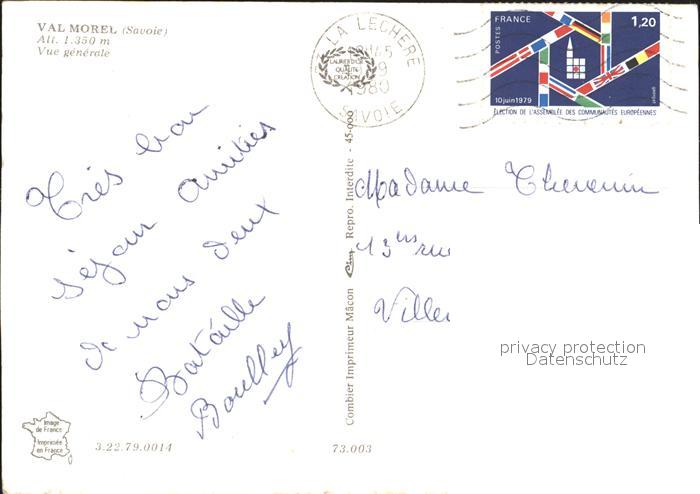 VAL MOREL (Savoie)
Alt. 1.350 m
Vue générale
LA LECHERE
1980
SAVOIE
LAURIER D'OR
QUALITÉ
CREATION
POSTES
FRANCE
1,20
10 juin 1979
ÉLECTION DE L'ASSEMBLÉE DES COMMUNAUTÉS EUROPÉENNES
Très bon
séjour amitiés
de nous deux
Bataille
Boulley
Combier Imprimeur Mâcon Cim Repro. Interdite - 45-000
Madame Thevenin
13 rue
Ville
privacy protection
Datenschutz
Image
de France
Imprimée
en France
3.22.79.0014
73.003